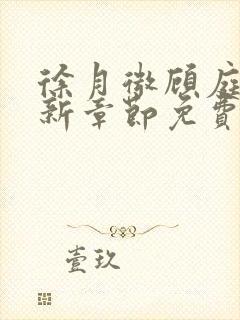 徐月徵顾庭
新章節免費
壹玖